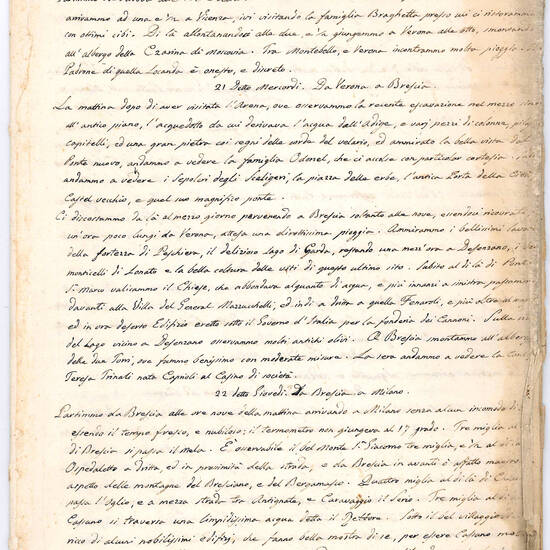 arrivammo ad una e ¼ a Vicenza, ivi visitando la famiglia Braghetta presso cui ci ristorammo
con ottimi cibi. Di là allontanandoci alle due, e ¼ giungemmo a Verona alle otto, smontando
all'albergo della Czarina di Moscovia. Tra Montebello, e Verona incontrammo molta pioggia. Il
Padrone di quella Locanda è onesto, e discreto.
21 detto Mercordì. Da Verona a Brescia.
La mattina dopo di aver visitata l'Arena, ove osservammo la recente escavazione nel mezzo
all'antico piano, l'acquedotto da cui derivava l'acqua dall'Adige, e varj pezzi di colonne,
capitelli, ed una gran pietra coi segni della corda del velario, ed ammirato la bella vista da
Ponte nuovo, andammo a vedere la famiglia Odonel, che ci accolse con particolar cortesia.
andammo a vedere i Sepolcri degli Scaligeri, la piazza delle erbe, l'antica Porta della Città
Castel vecchio, e quel suo magnifico ponte.
Ci discostammo da là al mezzo giorno pervenendo a Brescia soltanto alle nove, essendoci
un'ora poco lungi da Verona, attesa una direttissima pioggia. Ammirammo i bellissimi
della fortezza di Peschiera, il delizioso Lago di Garda, restando una mezz'ora a Desenzano, i
monticelli di Lonato e la bella coltura delle viti di questo ultimo sito. Subito al di là di Ponte
S. Marco valicammo il Chiese, che abbondava alquanto di acqua, e più innanzi a sinistra passammo
davanti alla Villa del General Mazzuchelli, ed indi a dritta a quella Fenaroli, e più oltre ad
ed in ora deserto Edifizio eretto sotto il Governo d'Italia per la fonderia dei Cannoni. Sulla
del Lago vicino a Desenzano osservammo molti antichi olivi. A Brescia smontammo all'albergo
delle due Torri, ove fummo benissimo con moderate misure. La sera andammo a vedere la
Teresa Trinali nata Caprioli al Casino di società.
22 detto Giovedì. Da Brescia a Milano.
Partimmo da Brescia alle ore nove della mattina arrivando a Milano senza alcun incomodo
essendo il tempo fresco, e nubiloso; il termometro non giungeva al 17 grado. Tre miglia
di Brescia si passa il Mela. È osservabile il bel Monte S. Giacomo tre miglia, e ¼ al di
Ospedaletto a dritta, ed in proximità della strada, e da Brescia in avanti è affatto
aspetto delle montagne del Bresciano, e del Bergamasco. Quattro miglia al di là di
passa l'Oglio, e a mezza strada tra Antignate, e Caravaggio il Serio. Tre miglia al di
Cassano si traversa una limpidissima acqua detta il Rettore. Sotto il del villaggio
rico di alcuni nobilissimi edifizj, che fanno bella mostra di se, per essere Cassano